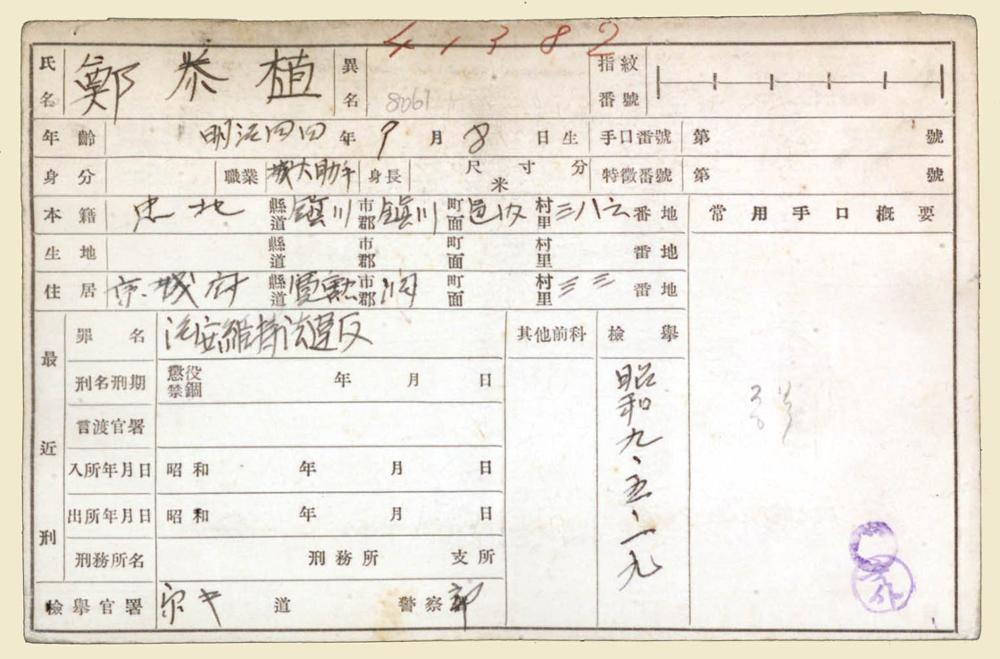 41382
氏名 鄭泰植 異名 8061 指紋番號
年齡 明治四四年9月8日生 手口番號 第 號
身分 職業 城大助手 身長 尺寸分 米 特徵番號 第 號
本籍 忠北 縣道 鎭川 市郡 鎭川 町面 邑內 村里 三八六 番地 常用手口概要
生地 縣道 市郡 町面 村里 番地
住居 京城府 縣道 寬勲 市郡 洞 町面 村里 三三 番地
最近刑 罪名 治安維持法違反 其他前科 檢擧
刑名刑期 懲役 禁錮 年 月 日 昭和九、五、一九
言渡官署
入所年月日 昭和 年 月 日
出所年月日 昭和 年 月 日
刑務所名 刑務所 支所
檢擧官署 京キ 道 警察部